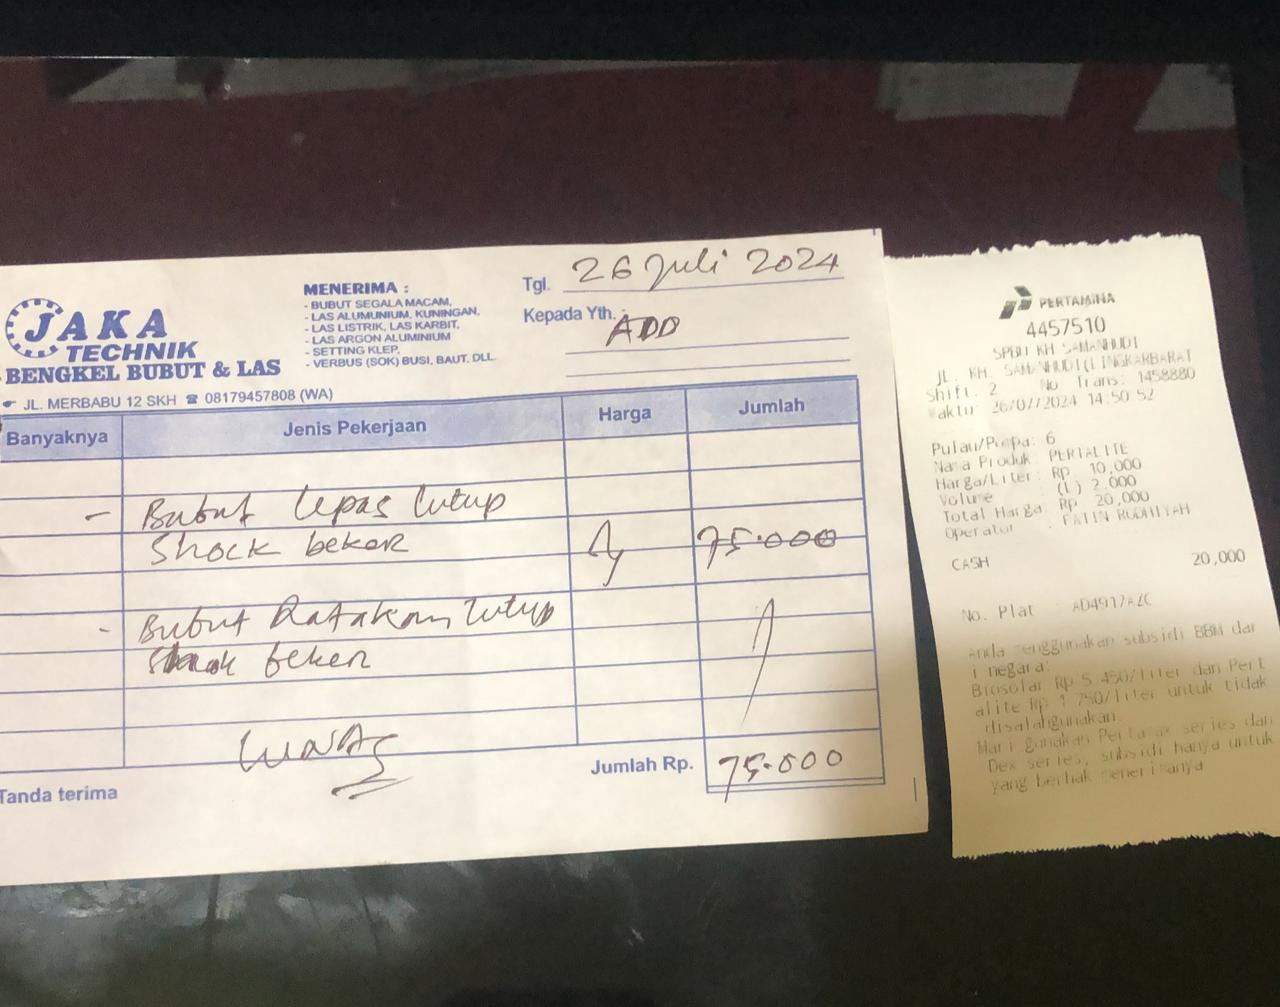 JAKA
TECHNIK
BENGKEL BUBUT & LAS
JL. MERBABU 12 SKH ☎ 08179457808 (WA)
MENERIMA :
- BUBUT SEGALA MACAM,
- LAS ALUMUNIUM, KUNINGAN,
- LAS LISTRIK, LAS KARBIT,
- LAS ARGON ALUMINIUM
- SETTING KLEP,
- VERBUS (SOK) BUSI, BAUT, DLL.
Tgl. 26 Juli 2024
Kepada Yth. :
ADD
Banyaknya Jenis Pekerjaan Harga Jumlah
- Bubut lepas tutup
Shock beker 75.000
- Bubut Ratakan tutup
Shock beker
Lunas
Jumlah Rp. 75.000
Tanda terima
PERTAMINA
4457510
SPBU KH SAMANHUDI
JL. KH. SAMANHUDI(LINGKARBARAT
Shift: 2 No Trans: 1458880
Waktu: 26/07/2024 14:50:52
Pulau/Pompa: 6
Nama Produk: PERTALITE
Harga/Liter: Rp 10,000
Volume : (L) 2.000
Total Harga: Rp 20,000
Operator : FATIN RODHIYAH
CASH 20,000
No. Plat : AD4917AZC
Anda menggunakan subsidi BBM dar
i negara:
Biosolar Rp 5.450/liter dan Pert
alite Rp 1.750/liter untuk tidak
disalahgunakan.
Mari gunakan Pertamax series dan
Dex series, subsidi hanya untuk
yang berhak menerimanya